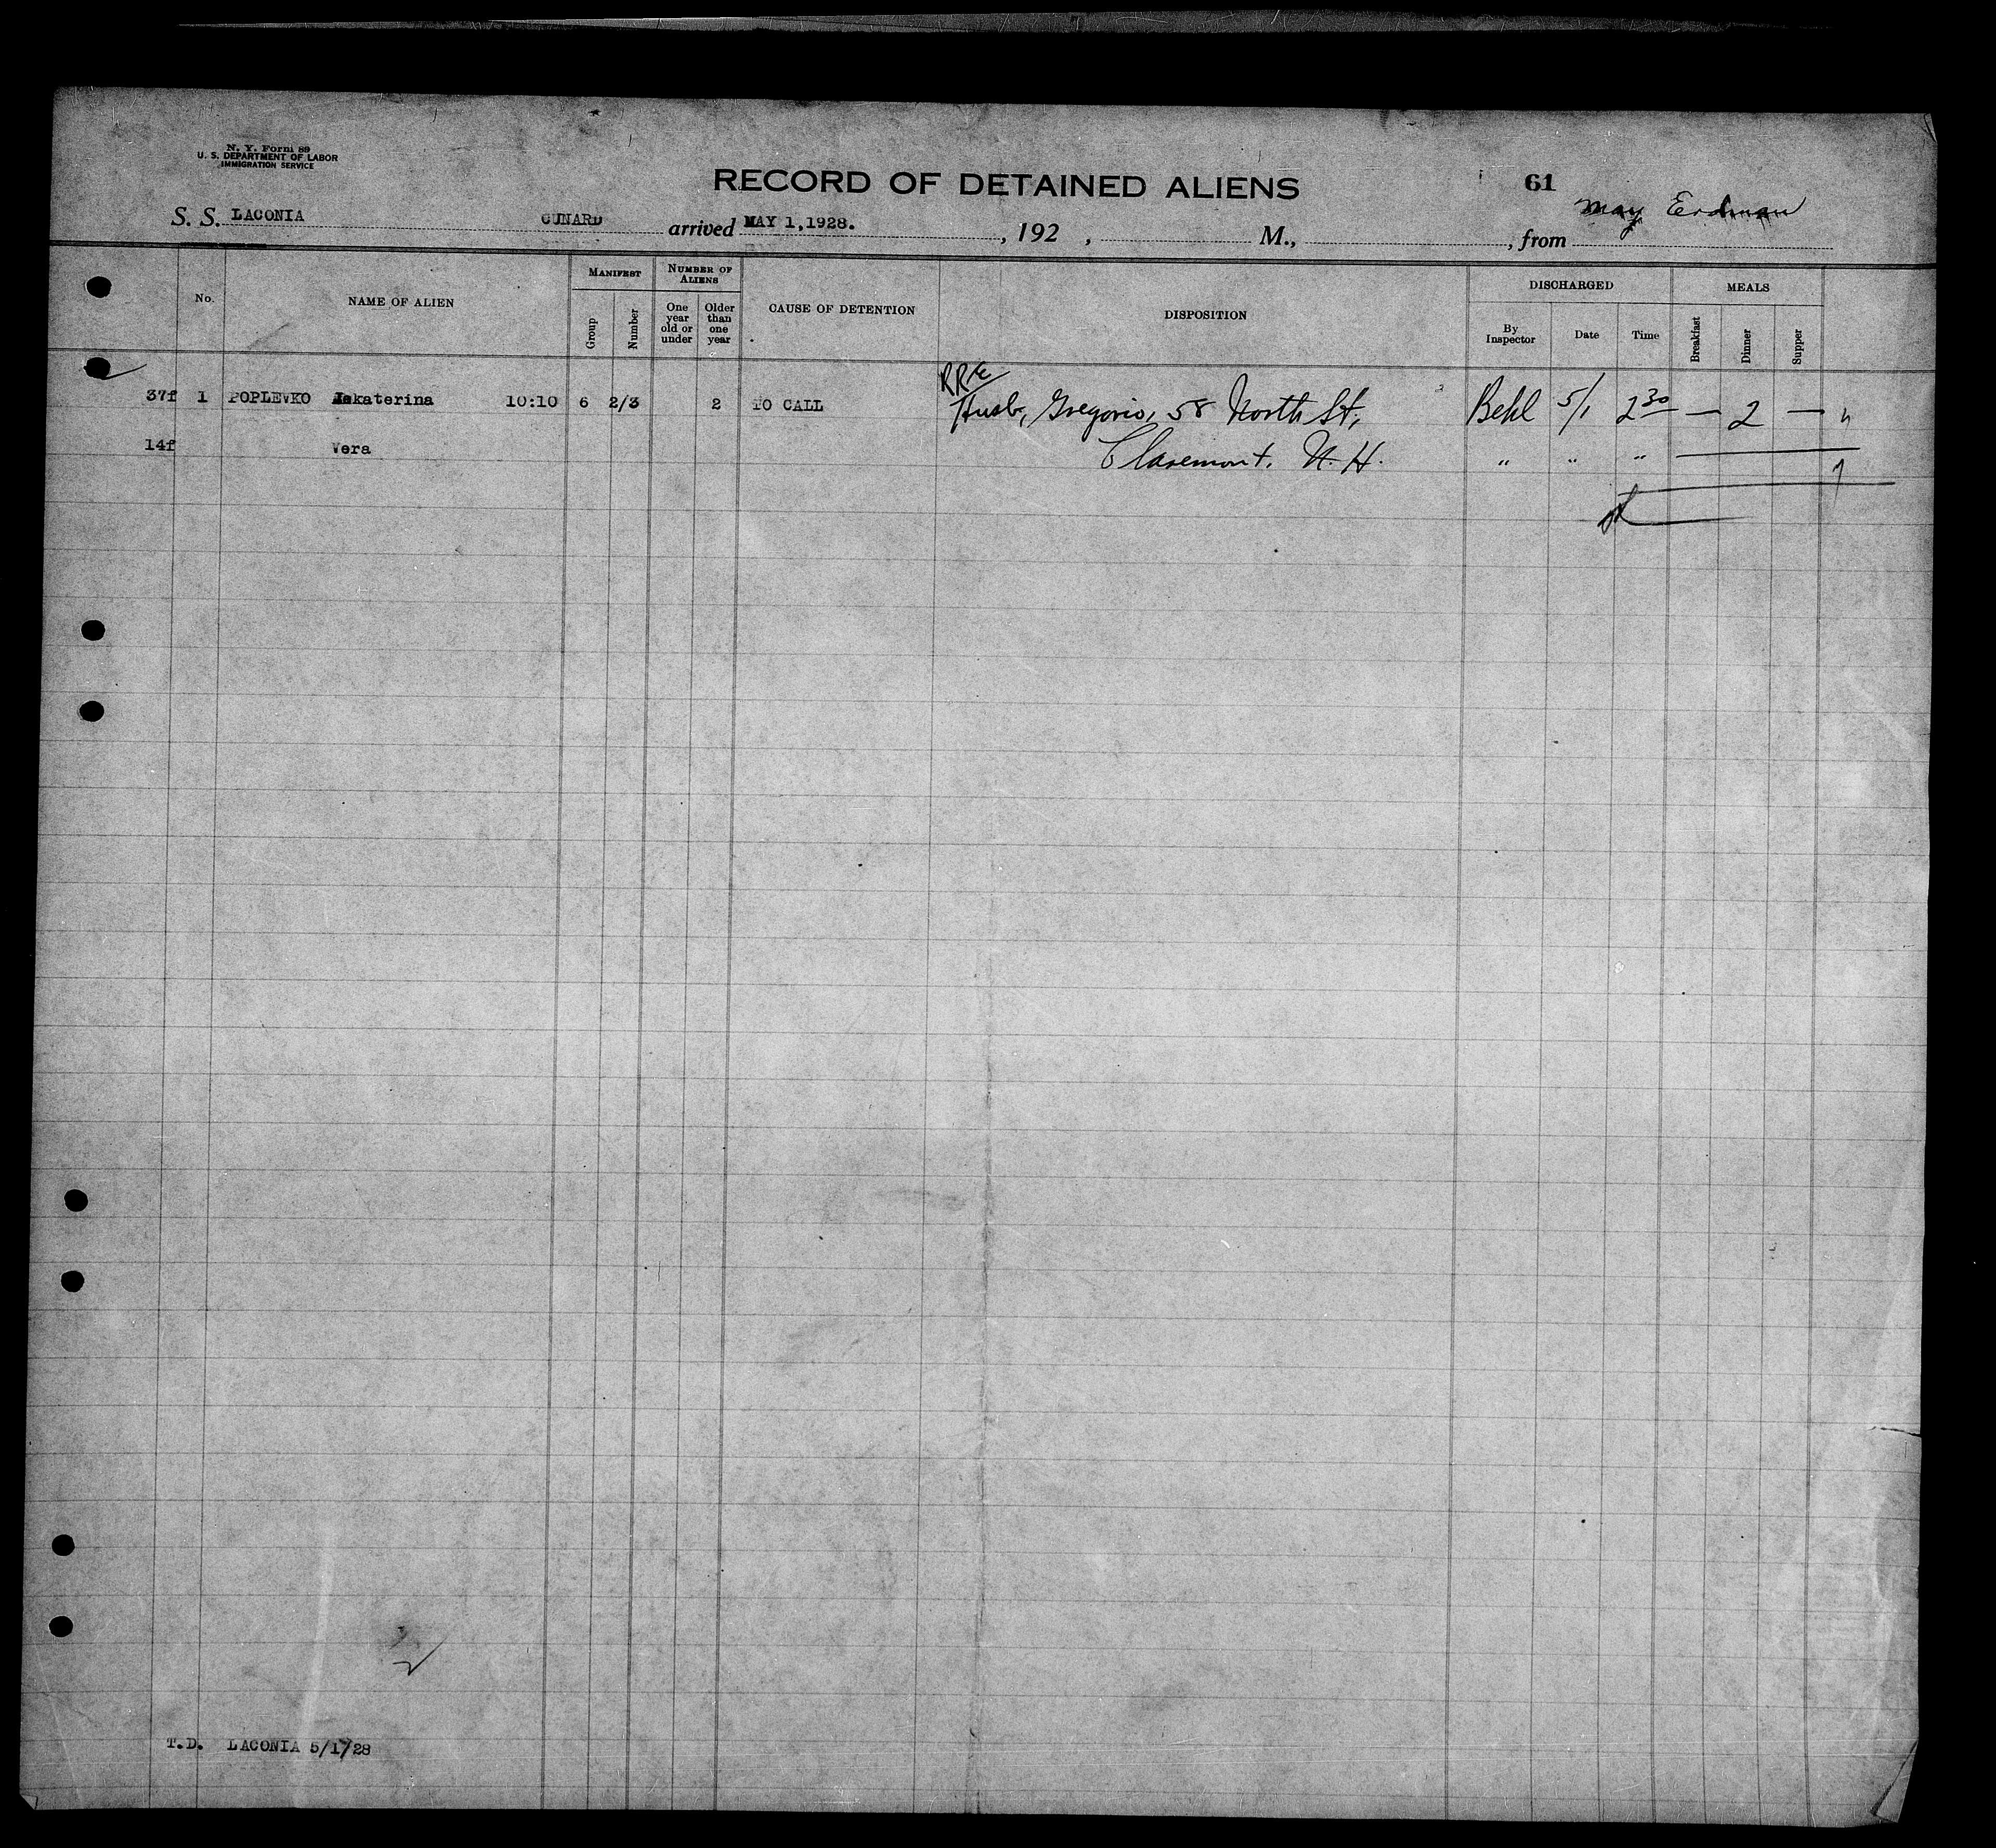 N. Y. Form 89
U. S. DEPARTMENT OF LABOR
IMMIGRATION SERVICE
RECORD OF DETAINED ALIENS 61
May Erdman
S. S. LACONIA CUNARD arrived MAY 1,1928. , 192 , M., , from
No. NAME OF ALIEN MANIFEST Group Number NUMBER OF ALIENS One year old or under Older than one year CAUSE OF DETENTION DISPOSITION DISCHARGED By Inspector Date Time MEALS Breakfast Dinner Supper
RRE
37f 1 POPLEVKO Jekaterina 10:10 6 2/3 2 TO CALL Husb, Gregorio, 58 North St, Behl 5/1 2 30 — 2 —
14f Vera Claremont, N. H. " " "
T.D. LACONIA 5/1/28